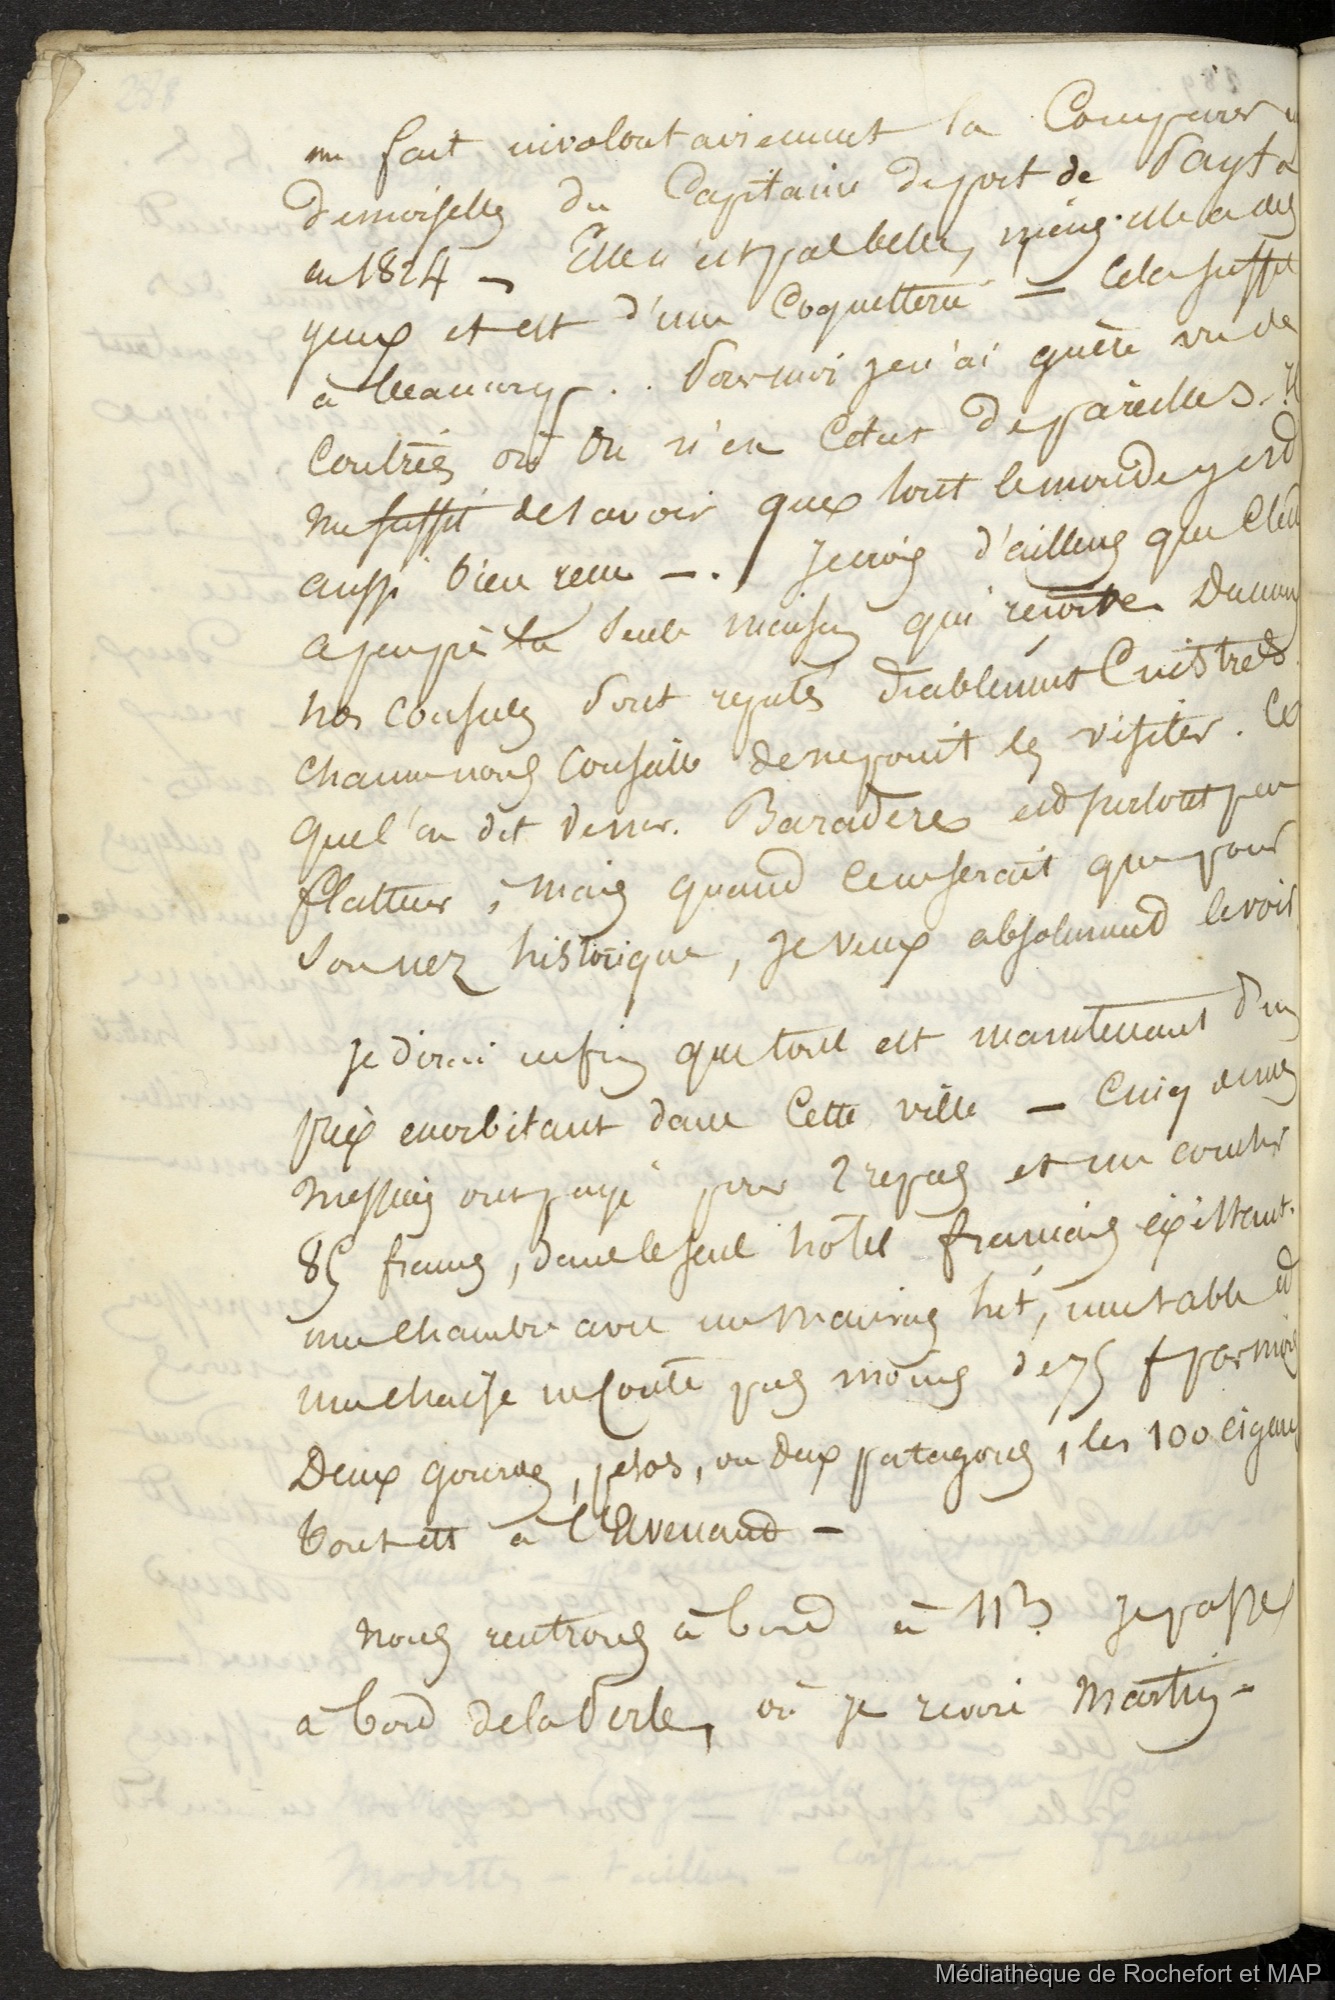 258
289
me fait involontairement la Comparer
demoiselles du Capitaine de port de Payta
en 1824 — Elle n'est pas belle, mais elle a des
yeux et est d'une Coquetterie — Cela suffit
à beaucoup. . Pour moi je n'ai guère vu de
Contrées où On n'en Citat de pareilles. Il
me suffit de savoir que tout le monde y est
aussi bien reçu —. Je crois d'ailleurs que C'est
a peu près la Seule maison qui reçoive
nos Consuls Sont reputés diablement Cuistres
chacun nous Conseille de ne point les visiter. Ce
que l'on dit de mr. Baradère est surtout peu
flatteur, Mais quand ce ne serait que pour
Son nez historique, Je veux absolument le voir
Je dirai enfin que tout est maintenant d'un
prix exorbitant dans Cette ville — Cinq de nos
Messieurs ont payé pour 2 repas et un coucher
85 francs, dans le seul hôtel français éxistant.
une chambre avec un mauvais lit, une table et
une chaise ne Coute pas moins de 75 f par mois
Deux gourdes, pesos, ou deux patagons, les 100 cigares
Tout est à l'Avenand —
Nous rentrons à bord à 11h. Je passe
a bord de la Perle, où je revois Martin —
Médiathèque de Rochefort et MAP